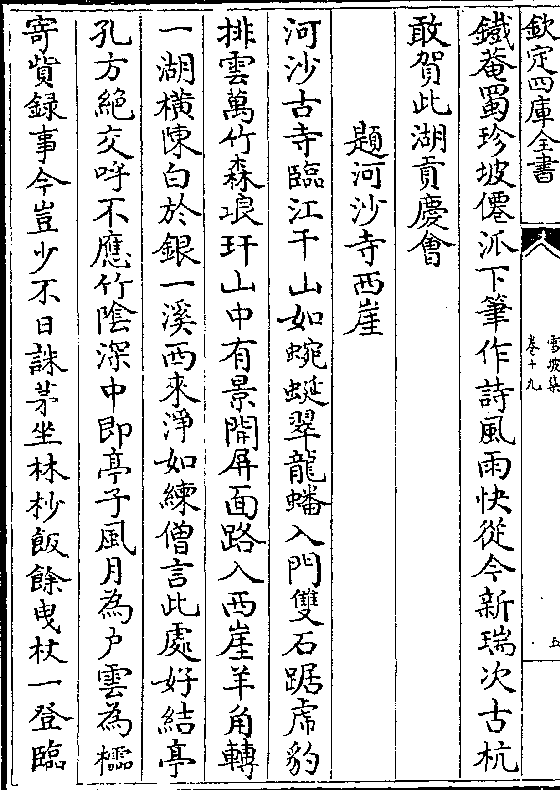 欽定四庫全書
雪坡集
卷十九
五
鐵菴蜀珍坡僊派下筆作詩風雨快從今新瑞次古杭
敢賀此湖貢慶會
題河沙寺西崖
河沙古寺臨江干山如蜿蜒翠龍蟠入門雙石踞虎豹
排雲萬竹森琅玕山中有景開屏面路入西崖羊角轉
一湖橫陳白於銀一溪西來淨如練僧言此處好結亭
孔方絶交呼不應竹陰深中即亭子風月為户雲為櫺
寄貲録事今豈少不日誅茅坐林杪飯餘曳杖一登臨